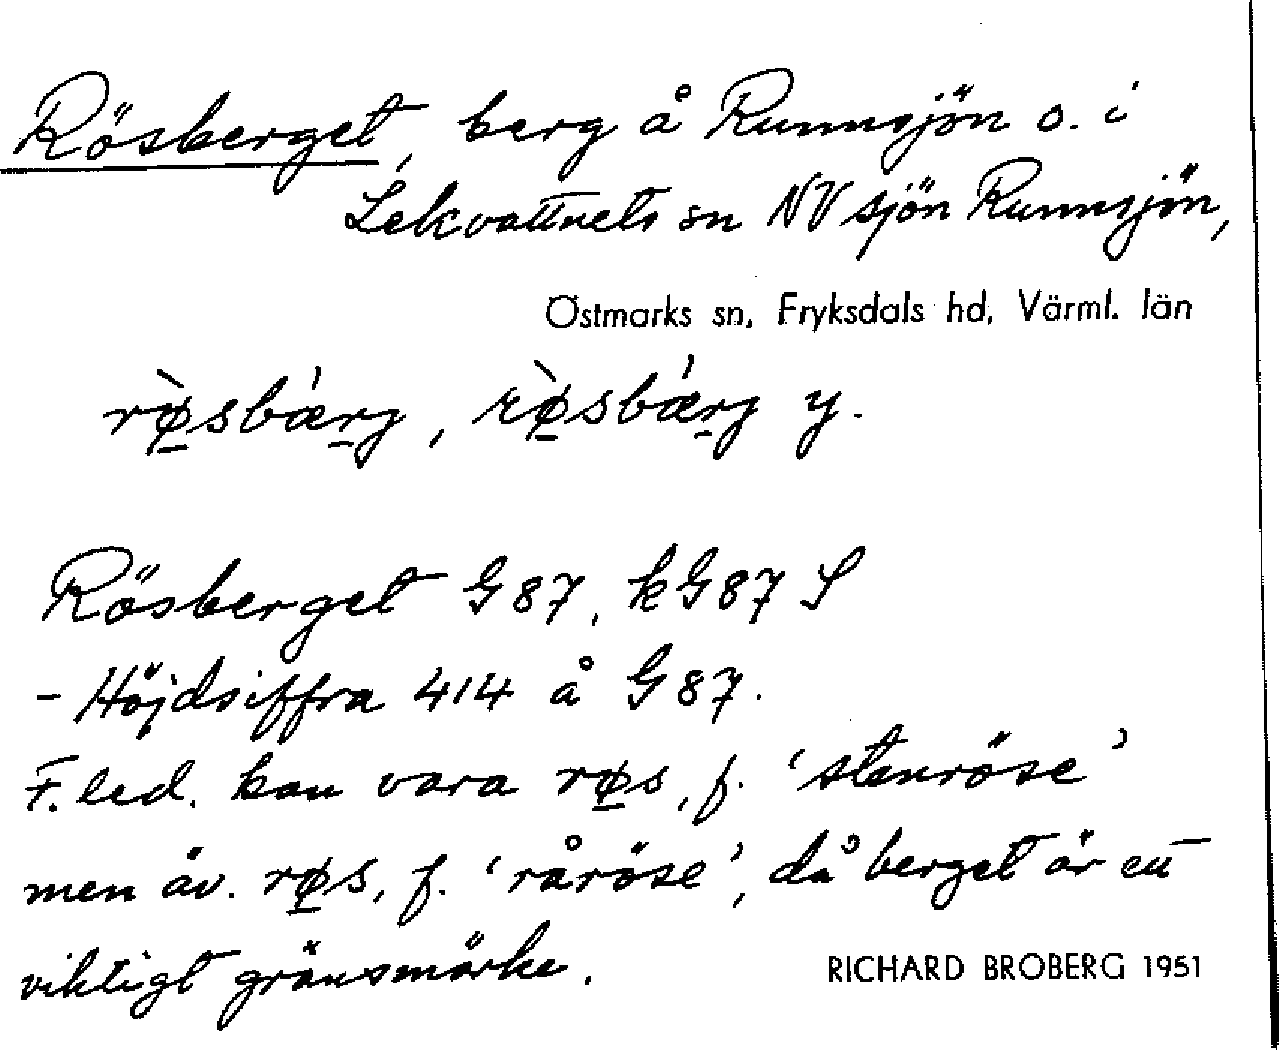 Rösberget, berg å Runnsjön o. i
Lekvattnets sn NV sjön Runnsjön,
Östmarks sn, Fryksdals hd, Värml. län
rø̱̀sbǽṟj, rø̱̀sbǽṟj y.
Rösberget G87, kG87 S
- Höjdsiffra 414 å G87.
F.led. kan vara rø̱s, f. 'stenröse'
men äv. rø̱s, f. 'råröse', då berget är ett
viktigt gränsmärke.
RICHARD BROBERG 1951